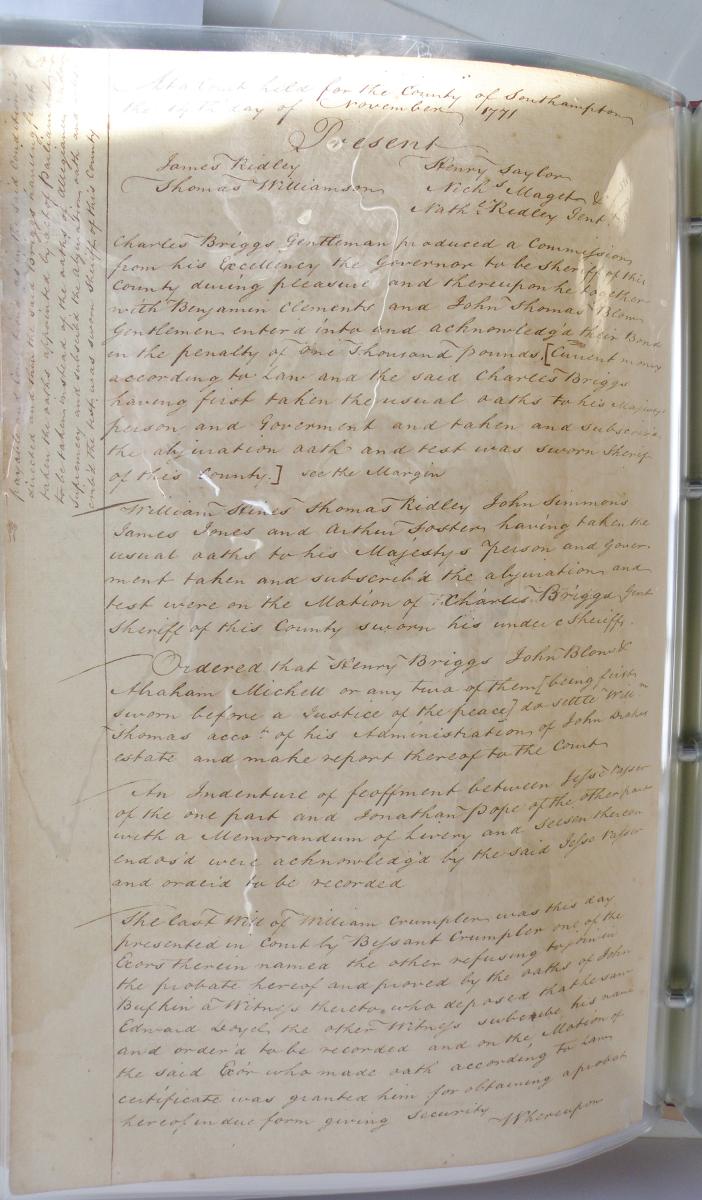 At a Court held for the County of Southampton
the 14th day of November 1771
Present
James Ridley
Thomas Williamson
Henry Taylor
Nichs Maget &
Nathl Ridley Gent
Charles Briggs Gentleman produced a Commission
from his Excellency the Governor to be Sheriff of this
County during pleasure and thereupon he together
with Benjamin Clements and John Thomas Blow
Gentlemen enter'd into and acknowledg'd their Bond
in the penalty of one Thousand pounds. [Current money
according to Law and the said Charles Briggs
having first taken the usual oaths to his Majestys
person and Goverment and taken and subscrib'd
the abjuration oath and test was sworn Sheriff
of this County.] see the Margin
William Hines Thomas Ridley John Simmons
James Jones and Arthur Foster having taken the
usual oaths to his Majestys person and Gover
ment taken and subscrib'd the abjuration and
test were on the Motion of Charles Briggs Gent
Sheriff of this County sworn his under Sheriffs.
Ordered that Henry Briggs John Blow &
Abraham Michell or any two of them [being first
sworn before a Justice of the peace] do settle Willm
Thomas accot. of his Administration of John
estate and make report thereof to the Court
An Indenture of feoffment between Jesse
of the one part and Jonathan Pope of the other part
with a Memorandum of Livery and Seisen thereon
endos'd were acknowledg'd by the said Jesse
and order'd to be recorded
The last Will of William Crumpler was this day
presented in Court by Beysant Crumpler one of the
Exors therein named the other refusing to join in
the probate hereof and proved by the oaths of John
Bufkin a Witness thereto, who deposed that he saw
Edward Loyd, the other Witness subscribe his name
and order'd to be recorded and on the Motion of
the said Exor who made oath according to Law
certificate was granted him for obtaining a probat
hereof in due form giving security
Whereupon
payable and conditioned as in the said Condition is
directed and then the said Briggs having first
taken the oaths appointed by act of Parliament
to be taken instead of the oaths of allegiance and
Supremacy and subscrib'd the abjuration oath and
the test, was sworn Sheriff of this County